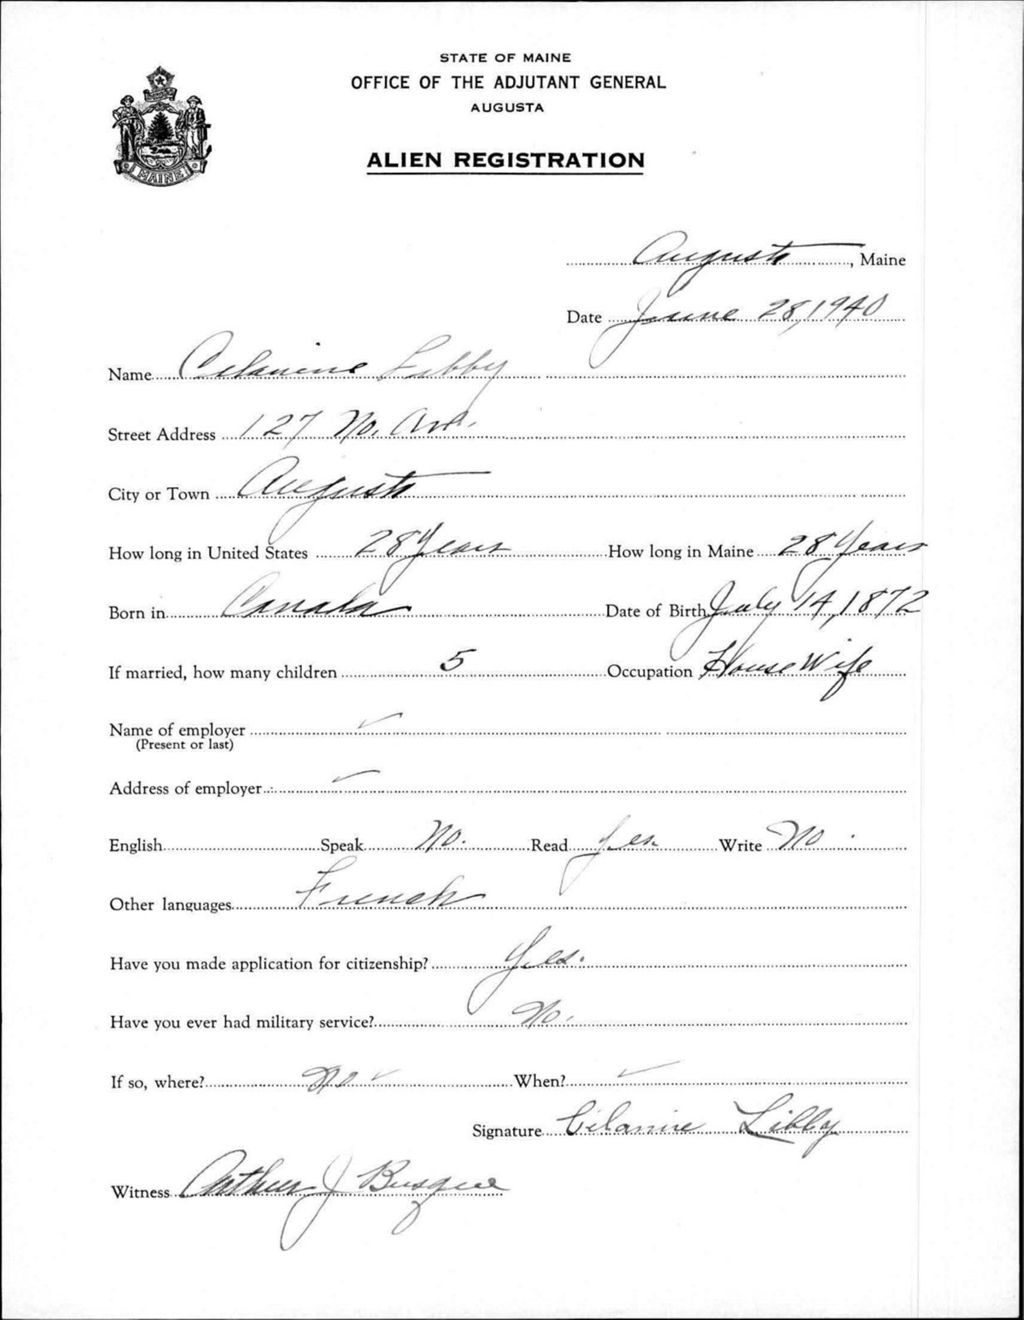 STATE OF MAINE
OFFICE OF THE ADJUTANT GENERAL
AUGUSTA
MAINE
ALIEN REGISTRATION
Augusta, Maine
Date June 28, 1940
Name Celanire Libby
Street Address 127 No. Ave.
City or Town Augusta
How long in United States 28 Years How long in Maine 28 Years
Born in Canada Date of Birth July 14, 1872
If married, how many children 5 Occupation House Wife
Name of employer
(Present or last)
Address of employer
English Speak No. Read Yes Write No
Other languages French
Have you made application for citizenship? Yes.
Have you ever had military service? No.
If so, where? No When?
Signature Celanire Libby
Witness Arthur J Busque